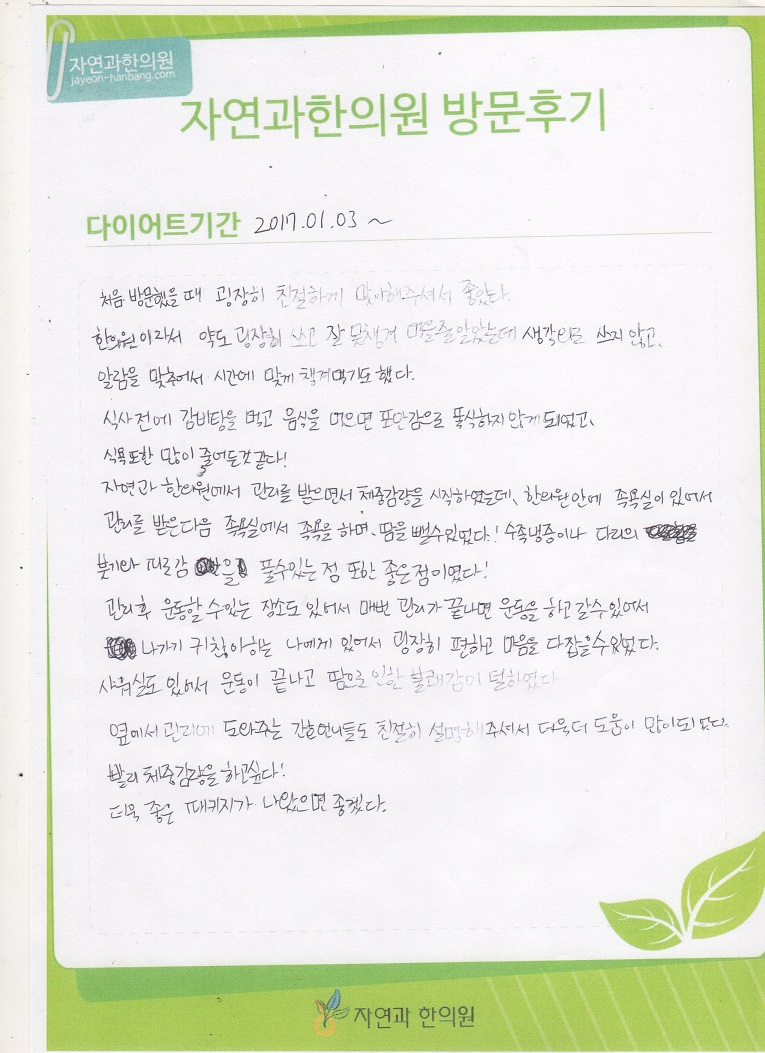 자연과한의원
jayeon-hanbang.com
자연과한의원 방문후기
다이어트기간 2017.01.03 ~
처음 방문했을 때 굉장히 친절하게 맞아해주셔서 좋았다.
한의원이라서 약도 굉장히 쓰고 잘 못챙겨 먹을줄알았는데 생각외로 쓰지 않고,
알람을 맞추어서 시간에 맞게 챙겨먹기도 했다.
식사전에 감비탕을 먹고 음식을 먹으면 포만감으로 폭식하지 않게 되었고,
식욕또한 많이 줄어든것 같다!
자연과 한의원에서 관리를 받으면서 체중감량을 시작하였는데, 한의원안에 족욕실이 있어서
관리를 받은다음 족욕실에서 족욕을 하며, 땀을 뺄수있었다! 수족냉증이나 다리의
붓기와 피로감을 풀수있는 점 또한 좋은점이였다!
관리후 운동할 수있는 장소도 있어서 매번 관리가 끝나면 운동을 하고 갈수있어서
나가기 귀찮아하는 나에게 있어서 굉장히 편하고 마음을 다잡을수있었다.
샤워실도 있어서 운동이 끝나고 땀으로 인한 불쾌감이 덜하였다
옆에서 관리에 도와주는 간호언니들도 친절히 설명해주셔서 더욱더 도움이 많이되었다.
빨리 체중감량을 하고싶다!
더욱 좋은 패키지가 나왔으면 좋겠다.
자연과 한의원